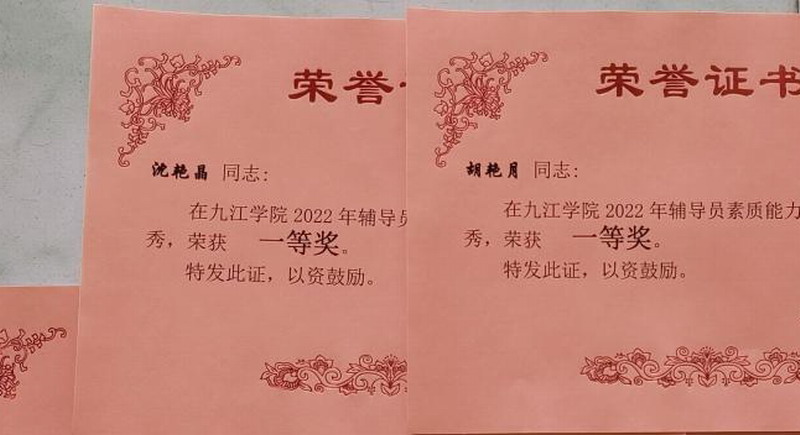 荣誉
沈艳晶 同志:
在九江学院 2022 年辅导员
秀，荣获 一等奖。
特发此证，以资鼓励。
荣誉证书
胡艳月 同志:
在九江学院 2022 年辅导员素质能力
秀，荣获 一等奖。
特发此证，以资鼓励。